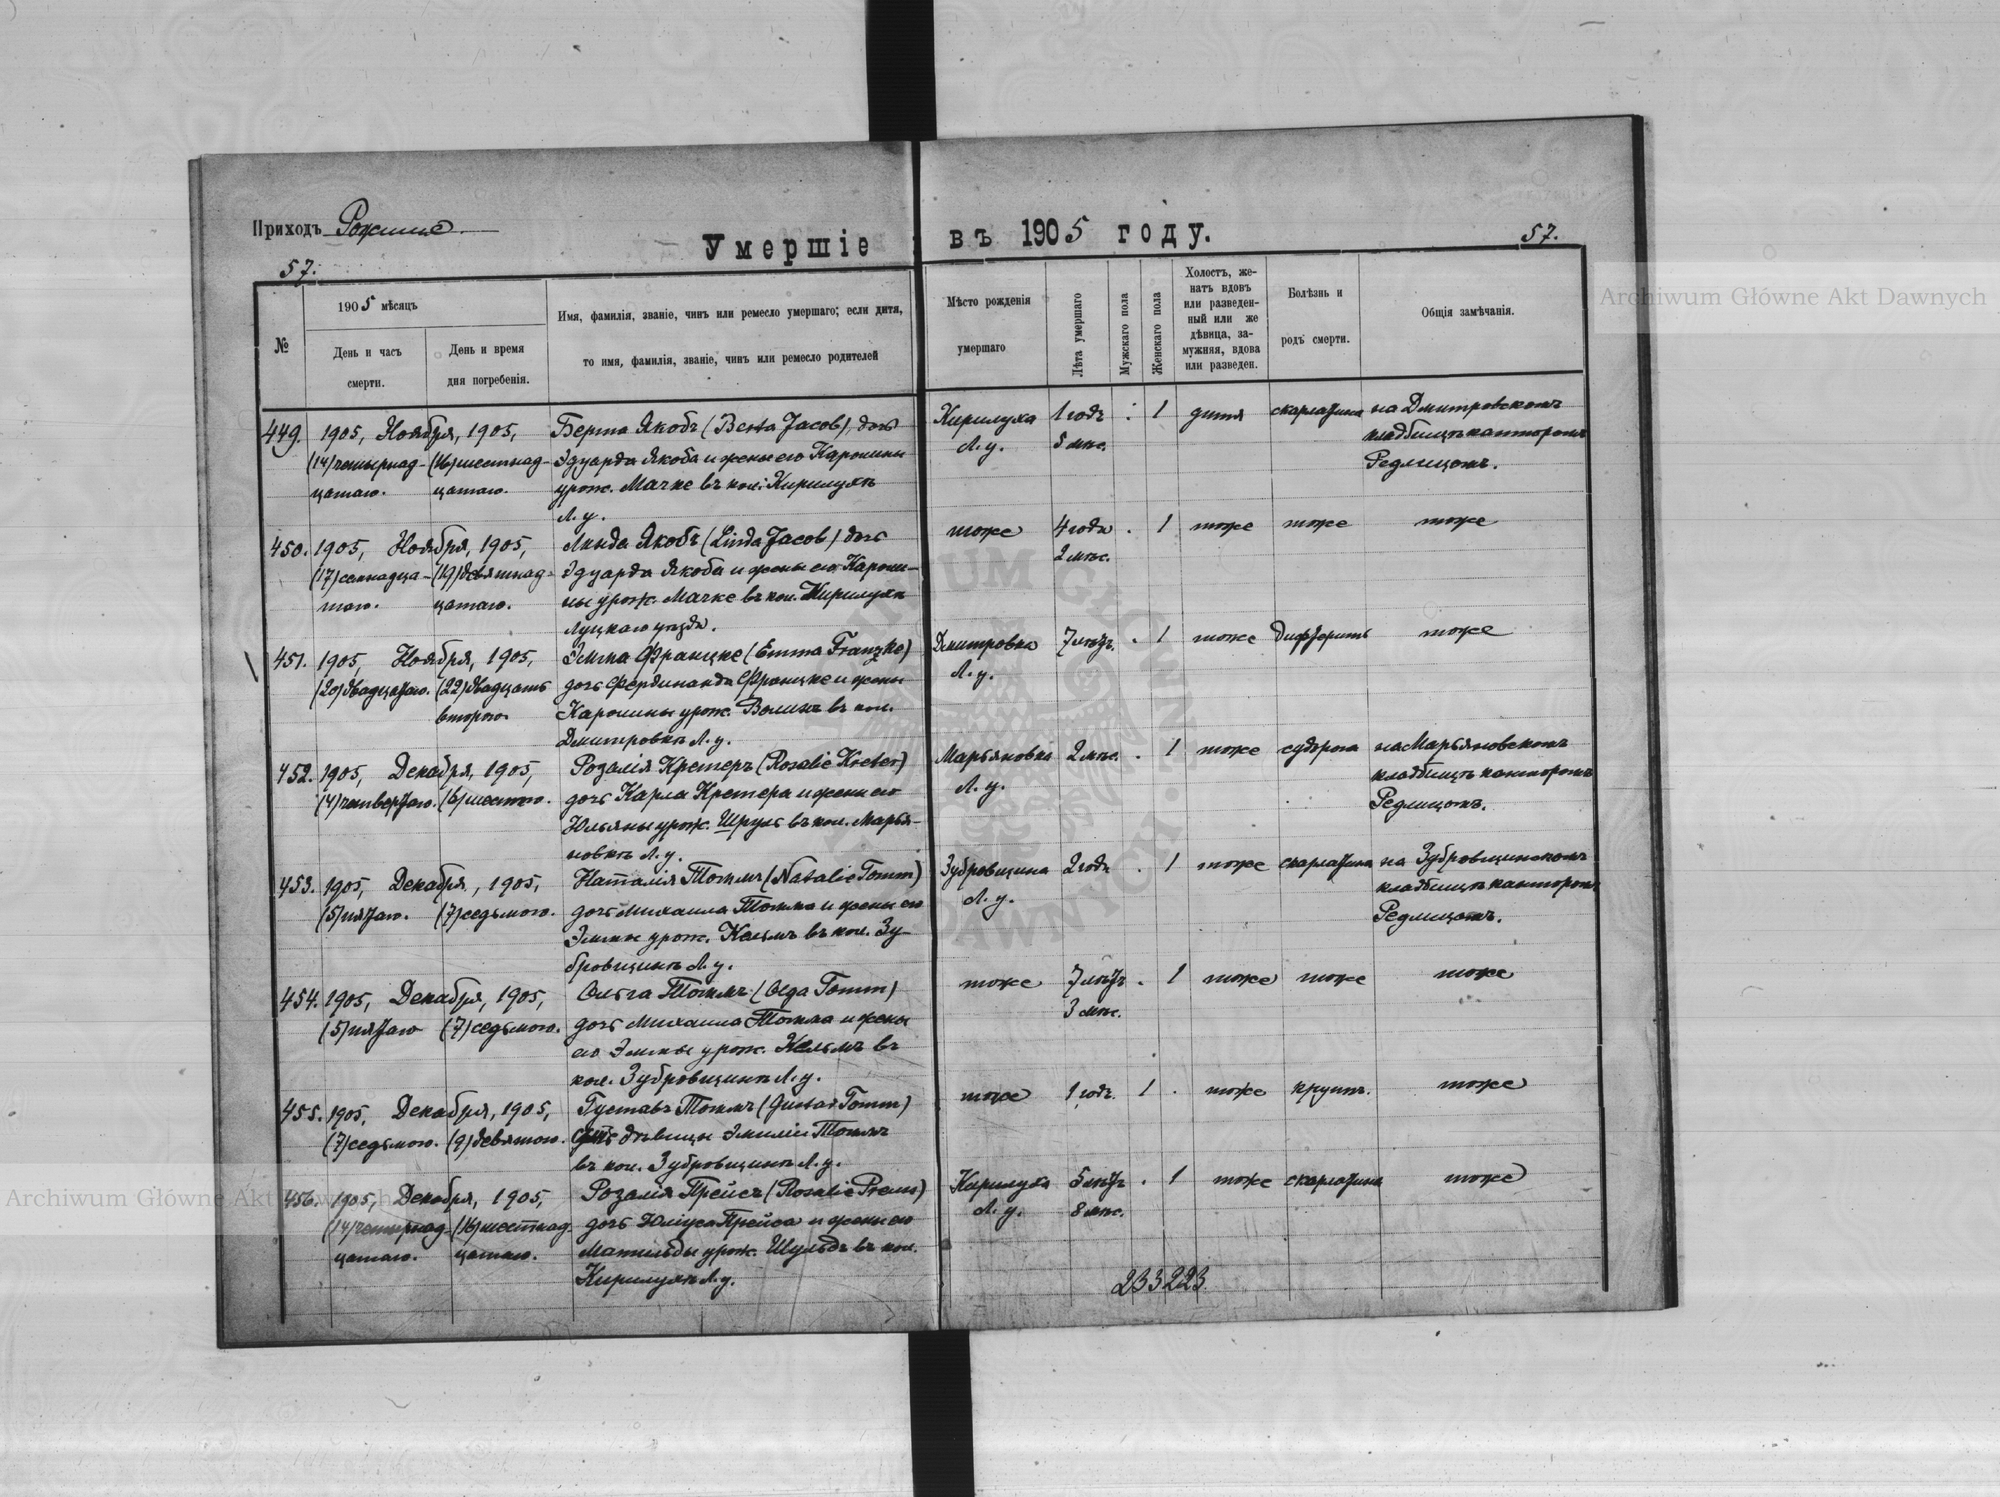 Приходъ Рожище
Умершіе въ 1905 году.
57.
57.
№
1905 мѣсяцъ
День и часъ смерти.
День и время дня погребенія.
Имя, фамилія, званіе, чинъ или ремесло умершаго; если дитя,
то имя, фамилія, званіе, чинъ или ремесло родителей
Мѣсто рожденія умершаго
Лѣта умершаго
Мужскаго пола
Женскаго пола
Холостъ, же-
натъ вдовъ
или разведен-
ный или же
дѣвица, за-
мужняя, вдова
или разведен.
Болѣзнь и
родъ смерти.
Общія замѣчанія.
449. 1905, Ноября, 1905, Берта Якобъ (Berta Jacob), дочь Кирилуха 1 годъ 1 дитя скарлатина на Дмитровскомъ
(14) четырнад- (16) шестнад- Эдуарда Якоба и жены его Каролины Л. у. 5 мѣс. кладбищѣ канторомъ
цатаго. цатаго. урож. Мачке въ кол. Кирилухѣ Редлицомъ.
Л. у.
450. 1905, Ноября, 1905, Линда Якобъ (Linda Jacob) дочь тоже 4 года 1 тоже тоже тоже
(17) семнадца- (19) девятнад- Эдуарда Якоба и жены его Кароли- 2 мѣс.
таго. цатаго. ны урож. Мачке въ кол. Кирилухѣ
Луцкаго уѣзда.
451. 1905, Ноября, 1905, Эмма Францке (Emma Franzke) Дмитровка 7 лѣтъ 1 тоже дифтеритъ тоже
(20) двадцатаго. (22) двадцать дочь Фердинанда Францке и жены Л. у.
второго. Каролины урож. в въ кол.
Дмитровкѣ Л. у.
452. 1905, Декабря, 1905, Розалія Кретеръ (Rosalie Kreter) Марьяновка 2 мѣс. 1 тоже судорога на Марьяновскомъ
(4) четвертаго. (6) шестого. дочь Карла Кретера и жены его Л. у. кладбищѣ канторомъ
Юльяны урож. Шруль въ кол. Марья- Редлицомъ.
новкѣ Л. у.
453. 1905, Декабря, 1905, Наталія Томмъ (Natalie Tomm) Зубровщина 2 года 1 тоже скарлатина на Зубровщинскомъ
(5) пятаго. (7) седьмого. дочь Михаила Томма и жены его Л. у. кладбищѣ канторомъ
Эммы урож. Кельмъ въ кол. Зу- Редлицомъ.
бровщинѣ Л. у.
454. 1905, Декабря, 1905, Ольга Томмъ (Olga Tomm) тоже 7 лѣтъ 1 тоже тоже тоже
(5) пятаго (7) седьмого. дочь Михаила Томма и жены 3 мѣс.
его Эммы урож. Кельмъ въ
кол. Зубровщинѣ Л. у.
455. 1905, Декабря, 1905, Густавъ Томмъ (Gustav Tomm) тоже 1 годъ. 1 тоже крупъ. тоже
(7) седьмого. (9) девятого. сынъ дѣвицы Эмиліи Томмъ
въ кол. Зубровщинѣ Л. у.
456. 1905, Декабря, 1905, Розалія Прейсъ (Rosalie Preuss) Кирилуха 5 лѣтъ 1 тоже скарлатина тоже
(14) четырнад- (16) шестнад- дочь Юліуса Прейса и жены его Л. у. 8 мѣс.
цатаго. цатаго. Матильды урож. Шульдъ въ кол.
Кирилухѣ Л. у.
233 223.
Archiwum Główne Akt Dawnych
Archiwum Główne Akt Dawnych